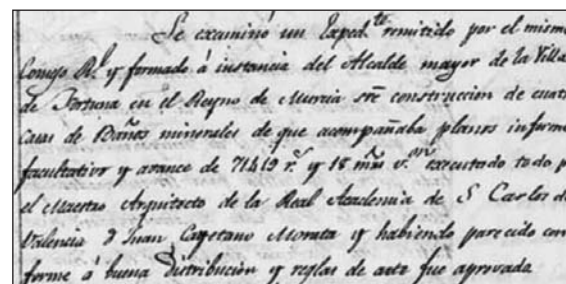 Se examinó un Exped.te remitido por el mismo
Consejo R.l y formado á instancia del Alcalde mayor de la Villa
de Fortuna en el Reyno de Murcia sre construccion de cuatr
casas de Baños minerales de que acompañaba planos inform
facultativo y avance de 71419 r.s y 18 mrs v.on executado todo p
el Maestro Arquitecto de la Real Academia de S Carlos de
Valencia d Juan Cayetano Morata y habiendo parecido con
forme á buena distribución y reglas de arte fue aprovada